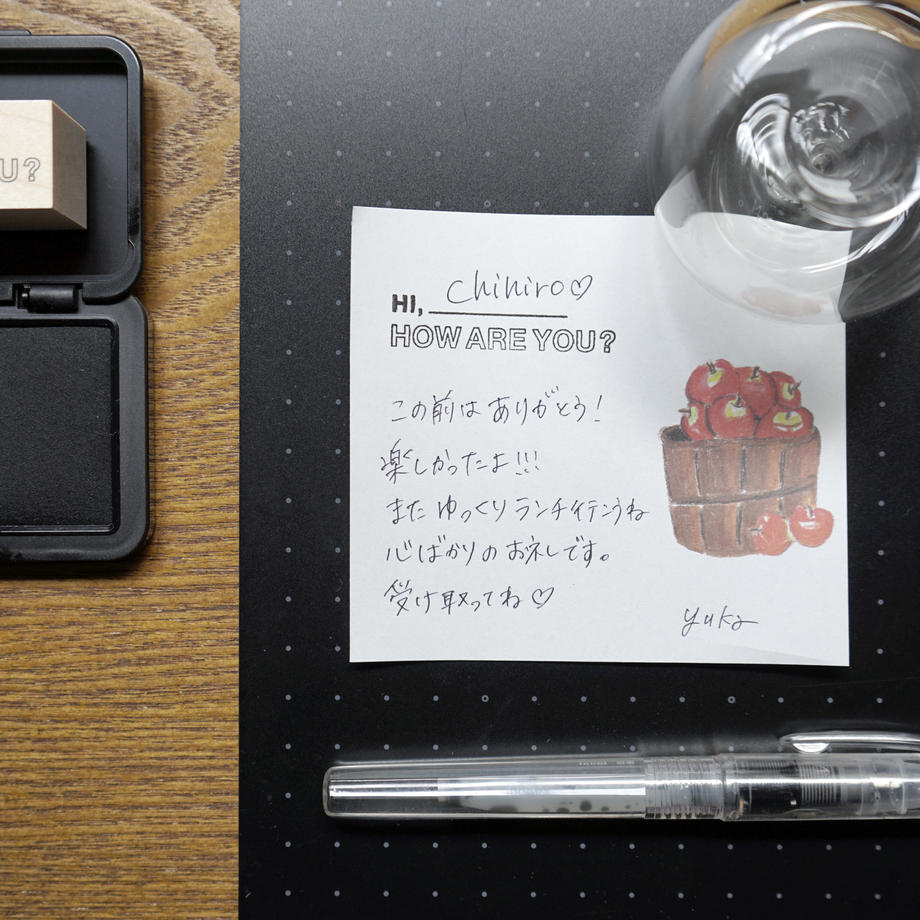 U?
HI, Chihiro♡
HOW ARE YOU?
この前は ありがとう!
楽しかったよ!!!
また ゆっくり ランチ行こうね
心ばかりの お礼です。
受け取ってね♡
yuka